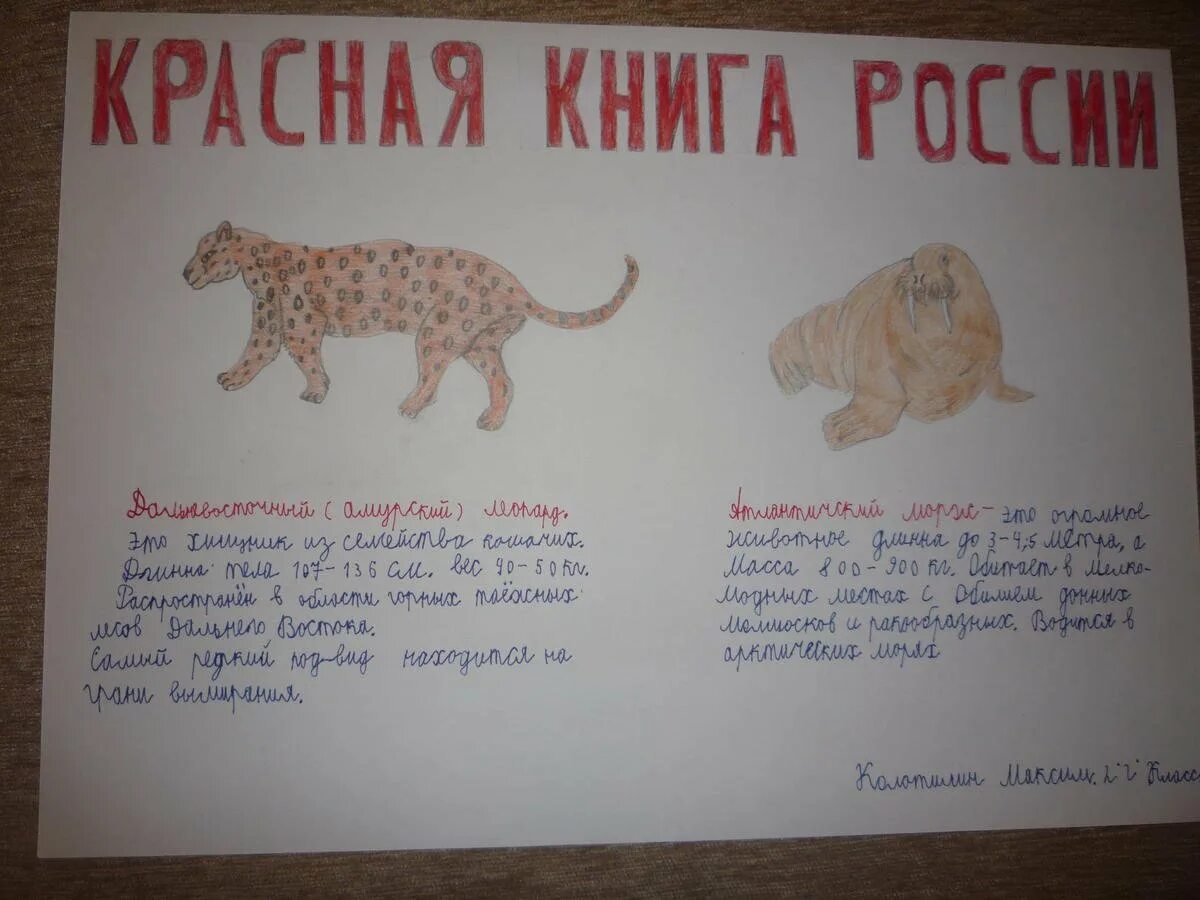 КРАСНАЯ КНИГА РОССИИ
Дальневосточный (амурский) леопард.
Это хищник из семейства кошачих.
Длинна тела 107-136 см. вес 40-50 кг.
Распространён в области горных таёжных
лесов Дальнего Востока.
Самый редкий под-вид находится на
грани вымирания.
Атлантический морж - это огромное
животное длинна до 3-4,5 метра, а
Масса 800-900 кг. Обитает в мелко-
модных местах с обилием донных
моллюсков и ракообразных. Водится в
арктических морях
Колотилин Максим. 2"г" Класс